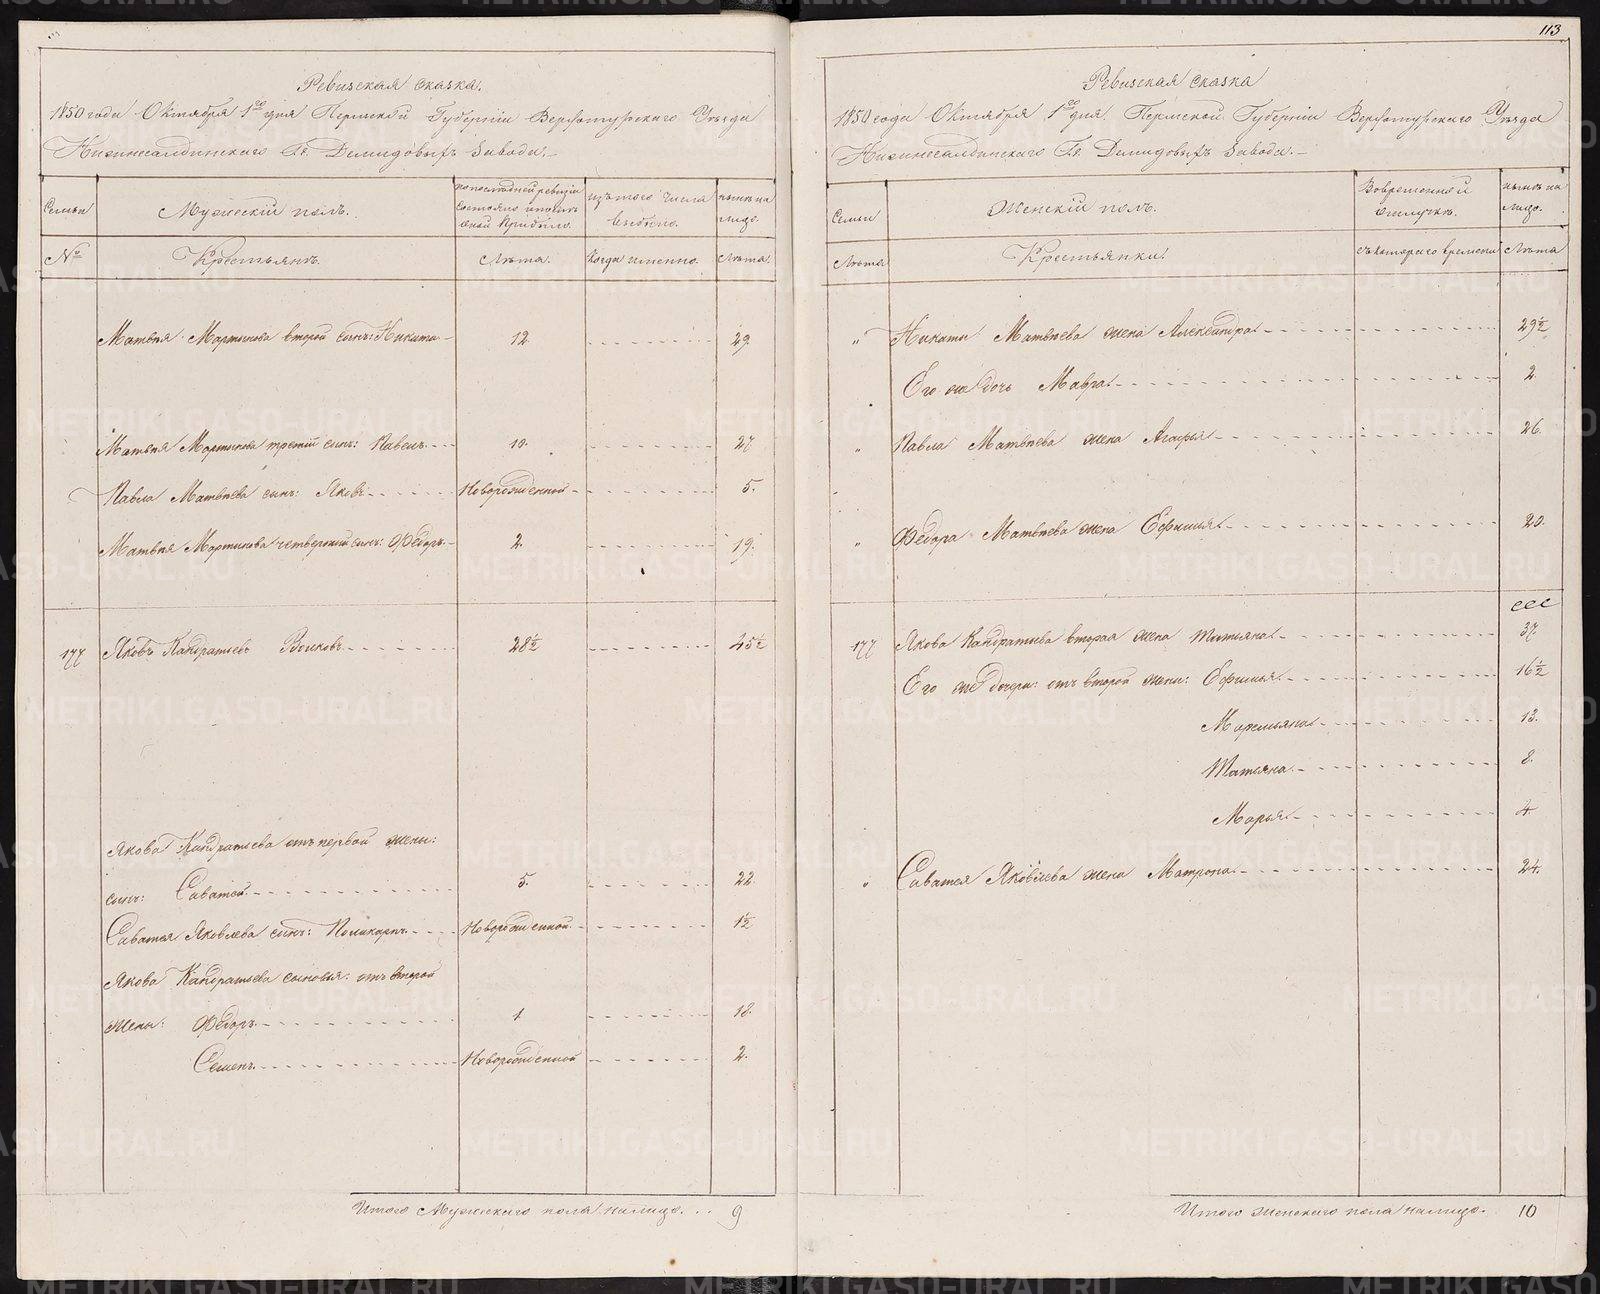 113
Ревизская сказка.
1850 года Октября 1го дня Пермской Губерніи Верхотурскаго Уѣзда
Нижнесалдинскаго Гг. Демидовыхъ Завода.
Семьи
Мужескій полъ.
по последней ревизіи состояло и после оной прибыло.
изъ того числа выбыло.
нынѣ на лицо.
№
Крестьянъ.
Лѣта.
Когда именно.
Лѣта.
Матвѣя Мартынова второй сынъ: Никита 12. 29.
Матвѣя Мартынова третій сынъ: Павелъ 10. 27.
Павла Матвѣева сынъ: Яковъ Новорожденной 5.
Матвѣя Мартынова четвертый сынъ: Ѳедоръ 2. 19.
177 Яковъ Кандратьевъ Волковъ 28½ 45½
Якова Кандратьева отъ первой жены:
сынъ: Саватей 5. 22.
Саватея Яковлева сынъ: Поликарпъ Новорожденной 1½
Якова Кандратьева сыновья: отъ второй
жены: Ѳедоръ 1. 18.
Семенъ Новорожденной 2.
Итого Мужескаго пола налицо 9
Ревизская сказка
1850 года Октября 1го дня Пермской Губерніи Верхотурскаго Уѣзда
Нижнесалдинскаго Гг. Демидовыхъ Завода.
Семьи
Женскій полъ.
Во временной отлучкѣ.
нынѣ на лицо.
Лѣта
Крестьянки.
съ котораго времени
Лѣта
" Никиты Матвѣева жена Александра 29½
Его же дочь Мавра 2.
" Павла Матвѣева жена Агафья 26.
" Ѳедора Матвѣева жена Ефимья 20.
177 Якова Кандратьева вторая жена Татьяна 37.
Его же дочери: отъ второй жены: Ефимья 16½
Маремьяна 13.
Татьяна 8.
Марья 4.
" Саватея Яковлева жена Матрона 24.
Итого женскаго пола налицо. 10
METRIKI.GASO-URAL.RU